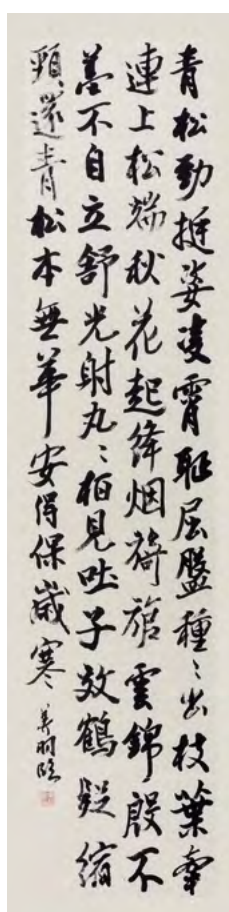 青松勁挺姿凌霄耻屈盤種〻出枝葉牽
連上松端秋花起絳烟旖旎雲錦殷不
羞不自立舒光射丸〻柏見吐子效鶴疑縮
頸還青松本無華安得保歲寒
臨